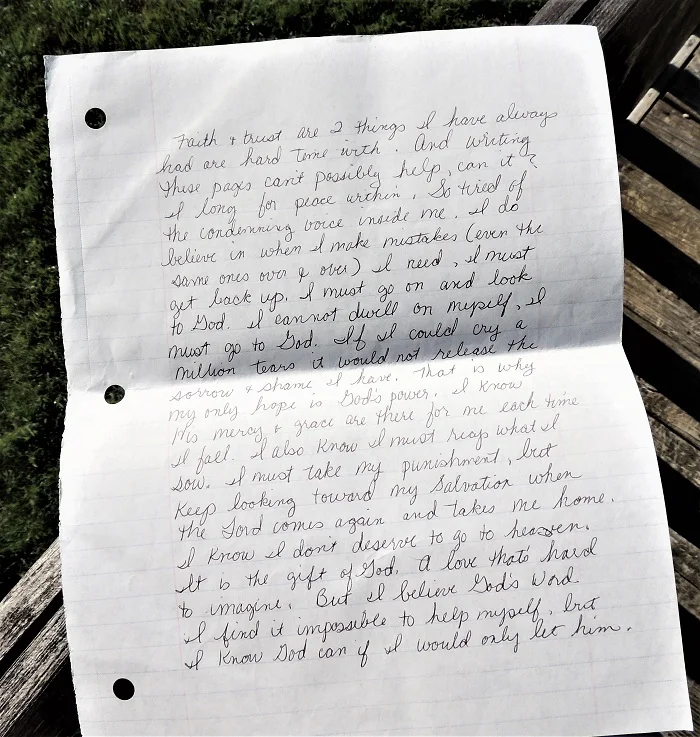 Faith + trust are 2 things I have always
had are hard time with. And writing
these pages can't possibly help, can it?
I long for peace within. So tired of
the condemning voice inside me. I do
believe in when I make mistakes (even the
same ones over & over) I need, I must
get back up. I must go on and look
to God. I cannot dwell on myself, I
must go to God. If I could cry a
million tears it would not release the
sorrow & shame I have. That is why
my only hope is God's power. I know
His mercy & grace are there for me each time
I fall. I also know I must reap what I
sow. I must take my punishment, but
keep looking toward my Salvation when
the Lord comes again and takes me home.
I know I don't deserve to go to heaven.
It is the gift of God. A love that's hard
to imagine. But I believe God's Word
I find it impossible to help myself, but
I know God can if I would only let him.